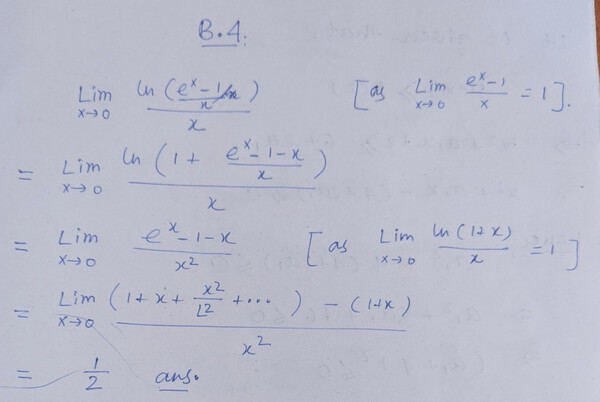 B.4.
Lim x→0 ln((e^x − 1)/x) / x [as Lim x→0 (e^x − 1)/x = 1].
= Lim x→0 ln(1 + (e^x − 1 − x)/x) / x
= Lim x→0 (e^x − 1 − x)/x^2 [as Lim x→0 ln(1+x)/x = 1]
= Lim x→0 ((1 + x + x^2/∟2 + ...) − (1+x)) / x^2
= 1/2 ans.